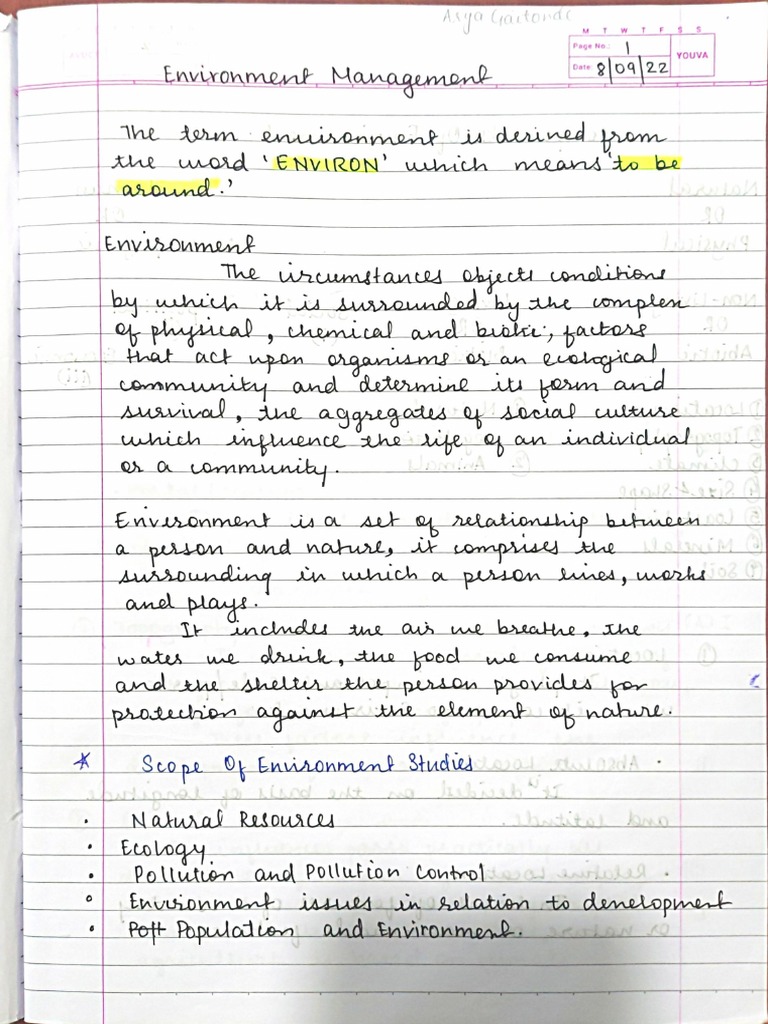 Asya Gaitonde
M T W T F S S
Page No.: 1
YOUVA
Date: 8/09/22
Environment Management
The term environment is derived from
the word 'ENVIRON' which means 'to be
around.'
Environment
The circumstances objects conditions
by which it is surrounded by the complex
of physical, chemical and biotic, factors
that act upon organisms or an ecological
community and determine its form and
survival, the aggregates of social culture
which influence the life of an individual
or a community.
Environment is a set of relationship between
a person and nature, it comprises the
surrounding in which a person lives, works
and plays.
It includes the air we breathe, the
water we drink, the food we consume
and the shelter the person provides for
protection against the element of nature.
* Scope Of Environment Studies
• Natural Resources
• Ecology
• Pollution and Pollution Control
• Environment issues in relation to development
• Population and Environment.